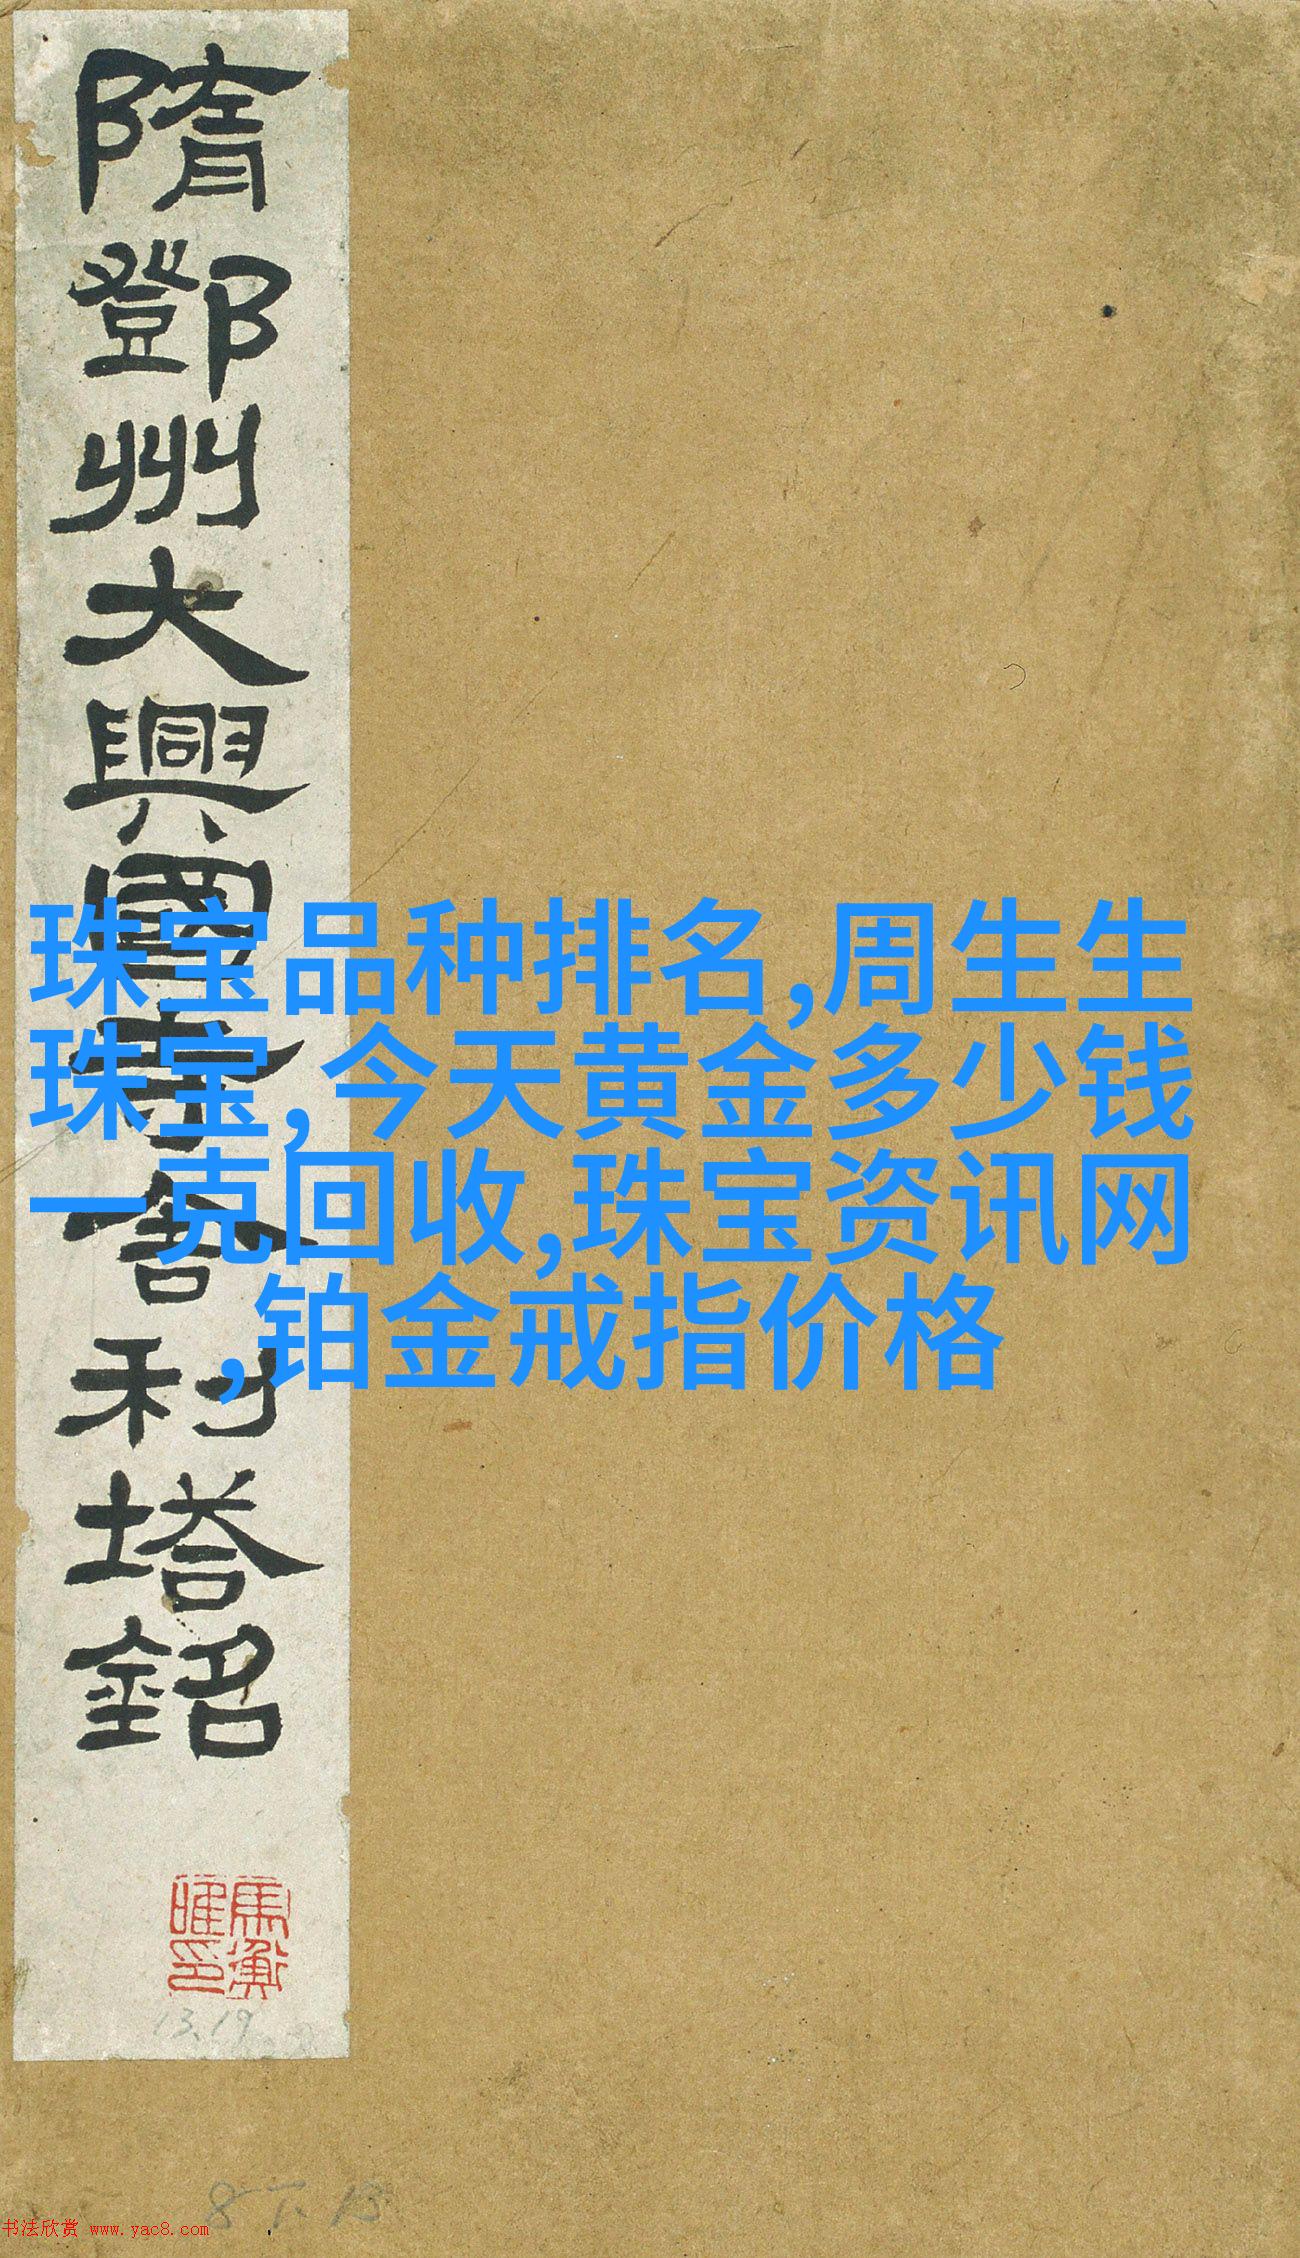 隋鄧州大興國寺舍利塔銘
珠宝品种排名,周生生
珠宝,今天黄金多少钱
一克回收,珠宝资讯网
,铂金戒指价格
馬衡
唯印
13.19
8下13
书法欣赏 www.yac8.com